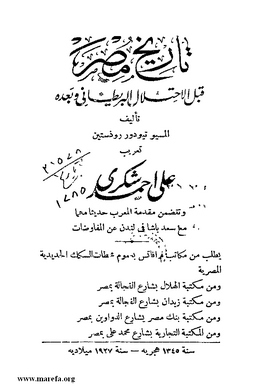 تاريخ مصر
قبل الاحتلال البريطاني وبعده
تأليف
المسيو تيودور روذستين
تعريب
على احمد شكرى
وتتضمن مقدمة المعرب حديثا مهما
مع سعد باشا في لندن عن المفاوضات
يطلب من مكاتب فرافاكس بعموم محطات السكك الحديدية
المصرية
ومن مكتبة الهلال بشارع الفجالة بمصر
ومن مكتبة زيدان بشارع الفجالة بمصر
ومن مكتبة بنك مصر بشارع الدواوين بمصر
ومن المكتبة التجارية بشارع محمد على بمصر
سنة ١٣٤٥ هجريه — سنة ١٩٢٧ ميلاديه
www.marefa.org